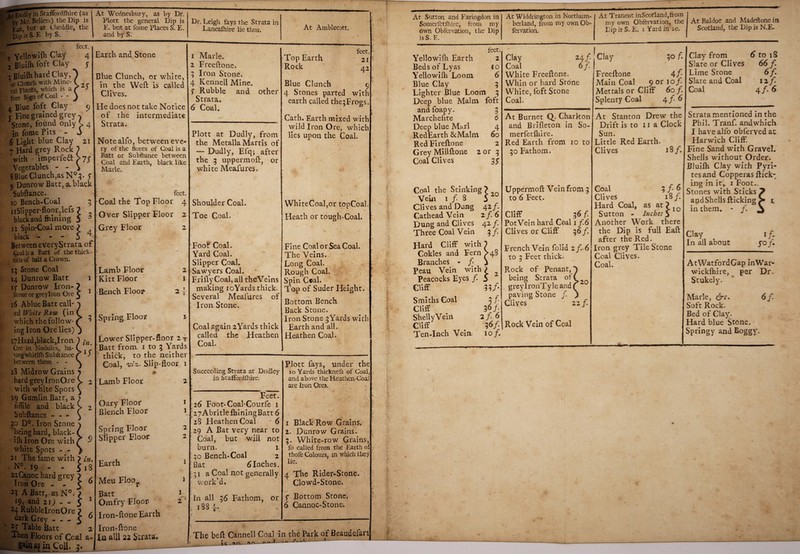 At Dudley in Staffordshire (as
by Mr. Bellers) the Dip is
East, but at Chedle, the
Dip is S. E. by S.
feet.
1 Yellowish Clay 4
2 Bluish soft Clay 5
3 Bluish hard Clay,
or Clunch with Mine-
ral Plants, which is a
sure Sign of Coal - -
25
4 Blue soft Clay 9
5 Fine grained grey
Stone, found only
in some Pits - -
4
6 Light blue Clay 21
7 Hard grey Rock
with imperfect
Vegetables - - -
75
8 Blue Clunch, as N°3. 5
9 Dunrow Batt, a black
Substance.
10 Bench-Coal 3
11 Slipper-floor, less
black and shining
3
12 Spin-Coal more
black - - - -
4
Between every Strata of
Coal is a Batt of the thick-
ness of half a Crown.
13 Stone Coal
14 Dunrow Batt 1
15 Dunrow Iron-
stone or grey Iron Ore
1
16 A blue Batt call-
ed White Row (in
which the follow-
ing Iron Ore lies)
3
17 Hard, black, Iron
Ore in Nodules, ha-
ving whitish Substance
between them - -
in.
15
18 Midrow Grains
hard grey Iron Ore
with white Spots
2
19 Gumlin Batt, a
fissile and black
Substance - - -
2
20 D°. Iron Stone
being hard, black-
ish Iron Ore with
white Spots - -
9
21 The same with
N°. 19 - -
in.
18
22 Canoc hard grey
Iron Ore - -
6
23 A Batt, as N°.
19, and 21) - -
1
24 Rubble Iron Ore
dark Grey - - -
6
25 Table Batt 2
Then Floors of Coal a-
gain as in Coll. 3.
At Wednesbury, as by Dr.
Plott the general Dip is
E. but at some Places S. E.
and by S.
Earth and Stone
Blue Clunch, or white,
in the West is called
Clives.
He does not take Notice
of the intermediate
Strata.
Note also, between eve-
ry of the floors of Coal is a
Batt or Substance between
Coal and Earth, black like
Marle.
feet.
Coal the Top Floor 4
Over Slipper Floor 2
Grey Floor 2
Lamb Floor 2
Kitt Floor 1
Bench Floor 2 ½
Spring Floor 1
Lower Slipper-floor 2 ½
Batt from 1 to 3 Yards
thick, to the neither
Coal, viz. Slip-floor 1
Lamb Floor 2
Oary Floor 1
Blench Floor 1
Spring Floor 2
Slipper Floor 2
Earth 1
Meu Floor 1
Batt 1
Omfry Floor 2
Iron-stone Earth
Iron-stone
In all 22 Strata.
Dr. Leigh says the Strata in
Lancashire lie thus.
1 Marle.
2 Freestone.
3 Iron Stone.
4 Kennell Mine.
5 Rubble and other
Strata.
6 Coal.
Plott at Dudly, from
the Metalla Marris of
— Dudly, Esq; after
the 3 uppermost, or
white Measures.
Shoulder Coal.
Toe Coal.
Foot Coal.
Yard Coal.
Slipper Coal.
Sawyers Coal.
Frisly Coal, all the Veins
making 10 Yards thick.
Several Measures of
Iron Stone.
Coal again 2 Yards thick
called the Heathen
Coal.
Succeeding Strata at Dudley
in Staffordshire.
Feet.
26 Foot-Coal-Course 1
27 A britle shining Batt 6
28 Heathen Coal 6
29 A Bat very near to
Coal, but will not
burn. 1
30 Bench-Coal 2
Bat 6 Inches.
31 a Coal not generally
work'd.
In all 36 Fathom, or
188 ½.
At Amblecott.
feet.
Top Earth 21
Rock 42
Blue Clunch 9
4 Stones parted with
earth called the 3 Frogs.
Cath. Earth mixed with
wild Iron Ore, which
lies upon the Coal.
White Coal, or top Coal.
Heath or tough-Coal.
Fine Coal or Sea Coal.
The Veins.
Long Coal.
Rough Coal.
Spin Coal.
Top of Suder Height.
Bottom Bench
Back Stone.
Iron Stone 3 Yards with
Earth and all.
Heathen Coal.
Plott says, under the
10 Yards thickness of Coal,
and above the Heathen-Coal
are Iron Ores.
1 Black Row Grains.
2. Dunrow Grains.
3. White-row Grains,
so called from the Earth of
those Colours, in which they
lie.
4 The Rider-Stone.
Clowd-Stone.
5 Bottom Stone.
6 Cannoc-Stone.
The best Cannell Coal in the Park of Beaudesart
At Sutton and Faringdon in
Somersetshire, from my
own Observation, the Dip
is S. E.
feet.
Yellowish Earth 2
Beds of Lyas 10
Yellowish Loom 6
Blue Clay 3
Lighter Blue Loom 3
Deep blue Malm soft
and soapy. 3
Marchesite 6
Deep blue Marl 4
Red Earth & Malm 60
Red Firestone 2
Grey Millstone 2 or 3
Coal Clives 35
Coal the Stinking
Vein 1 f. 8
20
Clives and Dung 42 f.
Cathead Vein 2 f. 6
Dung and Clives 42 f.
Three Coal Vein 3 f.
Hard Cliff with
Cokles and Fern
Branches - f.
48
Peau Vein with
Peacocks Eyes f.
2
Cliff 33 f.
Smiths Coal 3 f.
Cliff 36 f.
Shelly Vein 2 f. 6
Cliff 36 f.
Ten-Inch Vein 10 f.
At Widdrington in Northum-
berland, from my own Ob-
servation.
Clay 24 f.
Coal 6 f.
White Freestone.
Whin or hard Stone
White, soft Stone
Coal.
At Burnet Q. Charlton
and Brisleton in So-
mersetshire.
Red Earth from 10 to
30 Fathom.
Uppermost Vein from 3
to 6 Feet.
Cliff 36 f.
Pot Vein hard Coal 1 f. 6
Clives or Cliff 36 f.
French Vein solid 2 f. 6
to 3 Feet thick.
Rock of Penant,
being Strata of
grey Iron Tyle and
paving Stone f.
20
Clives 22 f.
Rock Vein of Coal
At Tranent in Scotland, from
my own Observation, the
Dip is S. E. 1 Yard in 10.
Clay 30 f.
Freestone 4 f.
Main Coal 9 or 10 f.
Mettals or Cliff 60 f.
Splenty Coal 4 f. 6
At Stanton Drew the
Drift is to 11 a Clock
Sun.
Little Red Earth.
Clives 18 f.
Coal 3 f. 6
Clives 18 f.
Hard Coal, as at
Sutton - Inches
10
Another Work there
the Dip is full East
after the Red.
Iron grey Tile Stone
Coal Clives.
Coal.
At Baldoe and Madestone in
Scotland, the Dip is N.E.
Clay from 6 to 18
Slate or Clives 66 f.
Lime Stone 6 f.
Slate and Coal 12 f.
Coal 4 f. 6
Strata mentioned in the
Phil. Tranf. and which
I have also observed at
Harwich Cliff.
Fine Sand with Gravel.
Shells without Order.
Bluish Clay with Pyri-
tes and Copperas stick-
ing in it, 1 Foot.
Stones with Sticks
and Shells sticking
in them. - f.
1
Clay 1 f.
In all about 50 f.
At Watford Gap in War-
wickshire, per Dr.
Stukely.
Marle, &c. 6 f.
Soft Rock.
Bed of Clay.
Hard blue Stone.
Springy and Boggy.